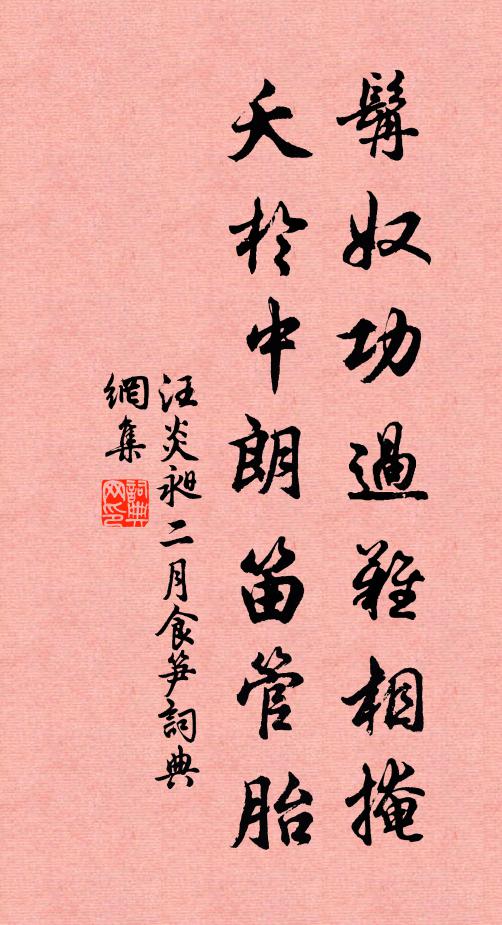 髯奴功過難相掩
夭於中朗笛管胎
汪炎昶二月食笋詞典
網集
詞典網印